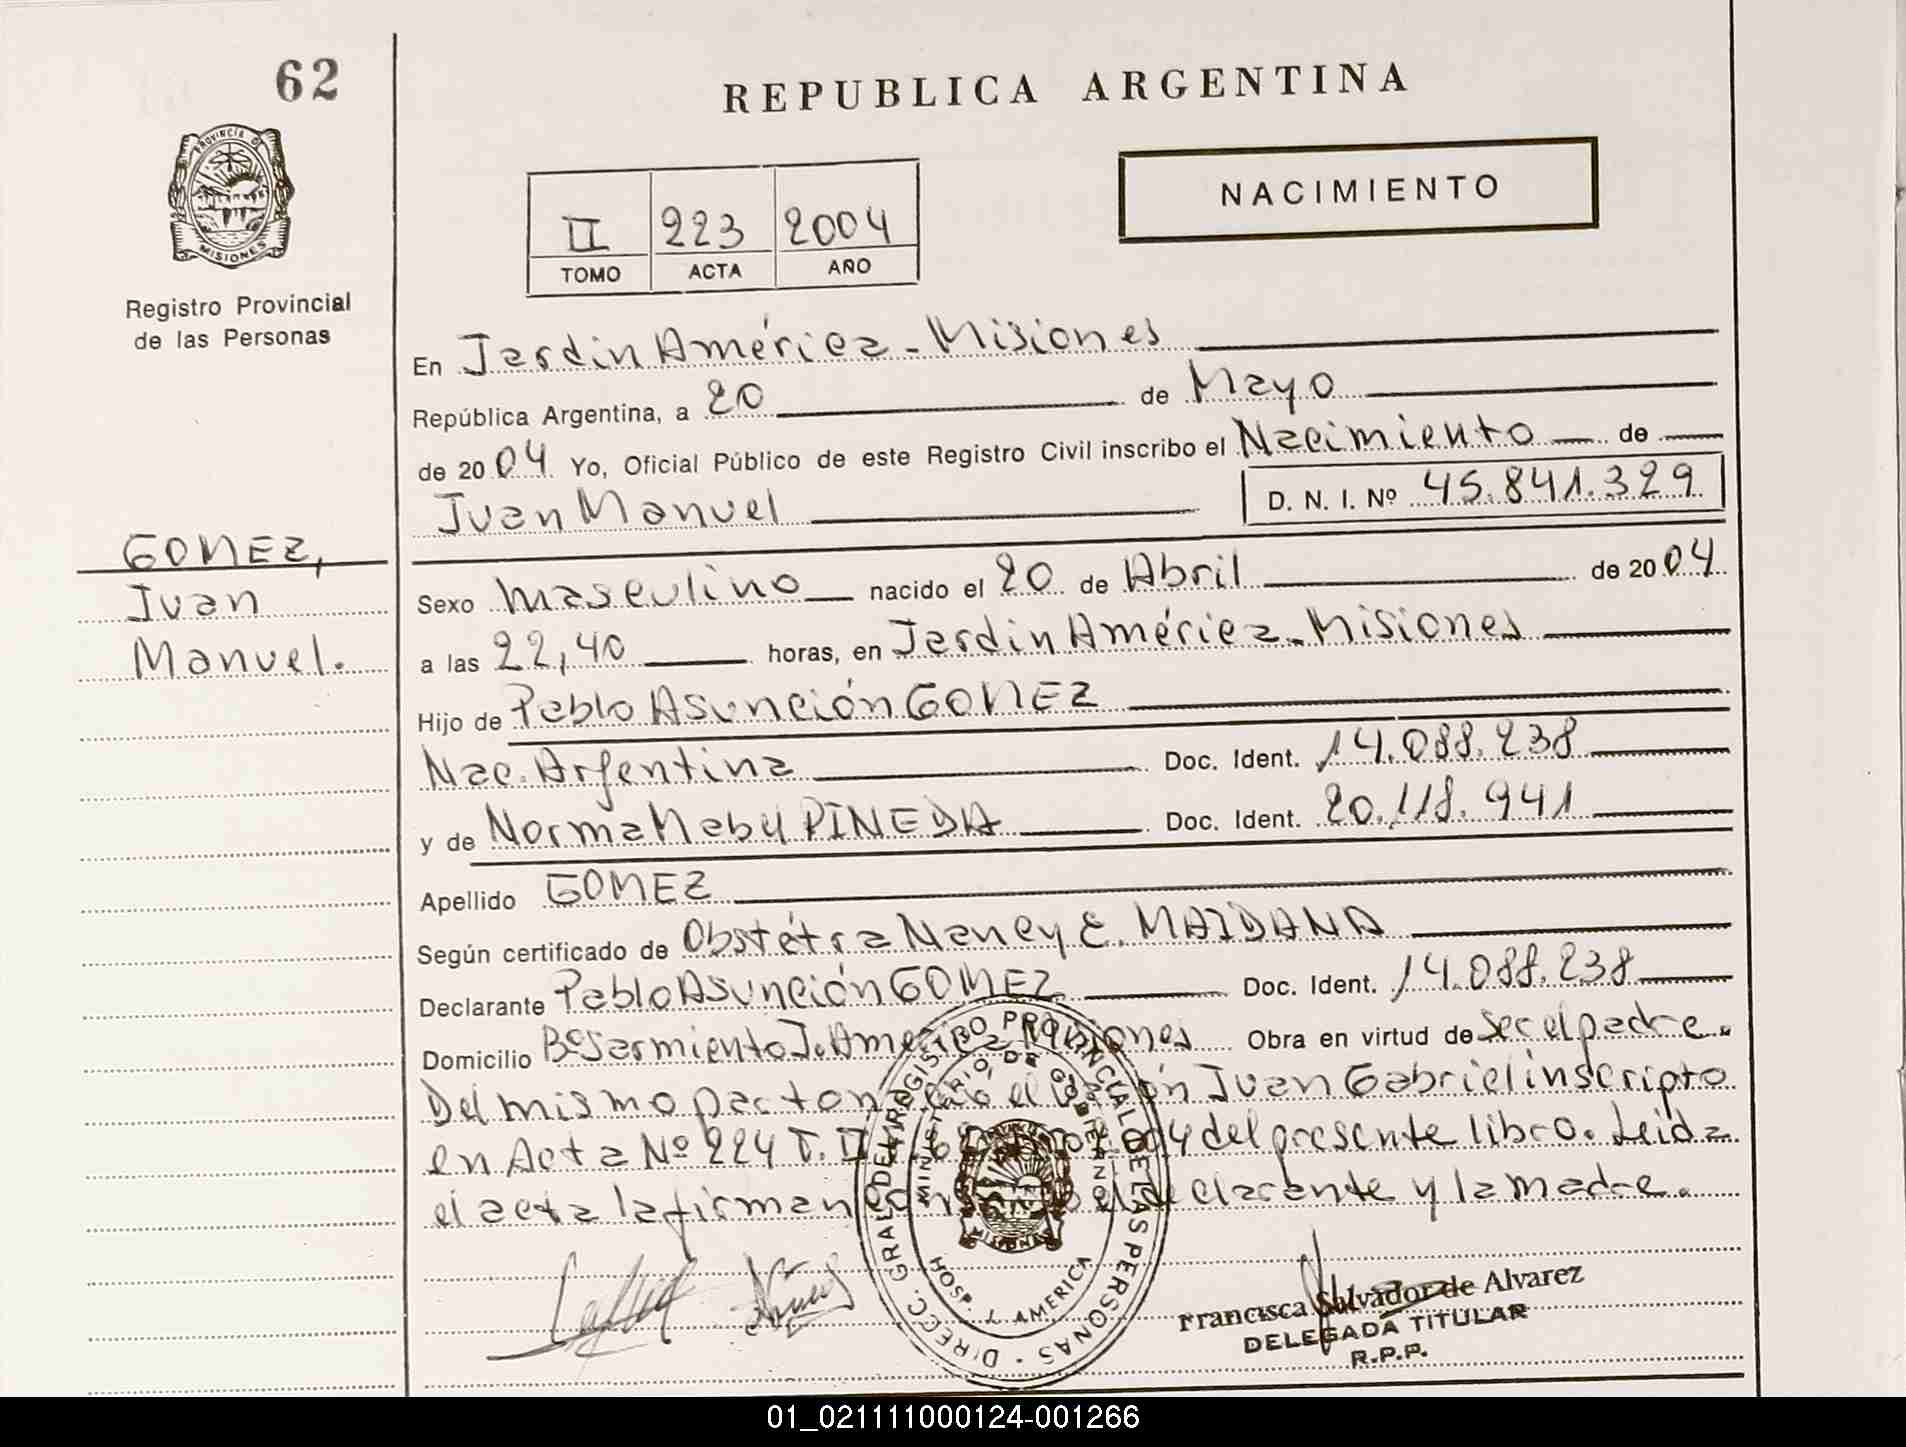 62
REPUBLICA ARGENTINA
PROVINCIA D
MISIONES
Registro Provincial
de las Personas
II 223 2004
TOMO ACTA AÑO
NACIMIENTO
En Jardin América - Misiones
República Argentina, a 20 de Mayo
de 2004 Yo, Oficial Público de este Registro Civil inscribo el Nacimiento de
Juan Manuel D. N. I. Nº 45.841.329
GOMEZ,
Juan
Manuel.
Sexo masculino nacido el 20 de Abril de 2004
a las 22,40 horas, en Jardin América - Misiones
Hijo de Pablo Asunción GOMEZ
Nac. Argentina Doc. Ident. 14.088.238
y de Norma PINEDA Doc. Ident. 20.118.941
Apellido GOMEZ
Según certificado de Obstétra Nancy E. MAIDANA
Declarante Pablo Asunción GOMEZ Doc. Ident. 14.088.238
Domicilio Bº Sarmiento J. America Misiones Obra en virtud de ser el padre.
Del mismo parto nació el varón Juan Gabriel inscripto
en Acta Nº 224 T. II del presente libro. Leida
el acta la firman el declarante y la madre.
DIRECC. GRAL. DEL REGISTRO PROVINCIAL DE LAS PERSONAS
MINISTERIO DE GOBIERNO
MISIONES
HOSP. J. AMERICA
Francisca Salvador de Alvarez
DELEGADA TITULAR
R.P.P.
01_021111000124-001266